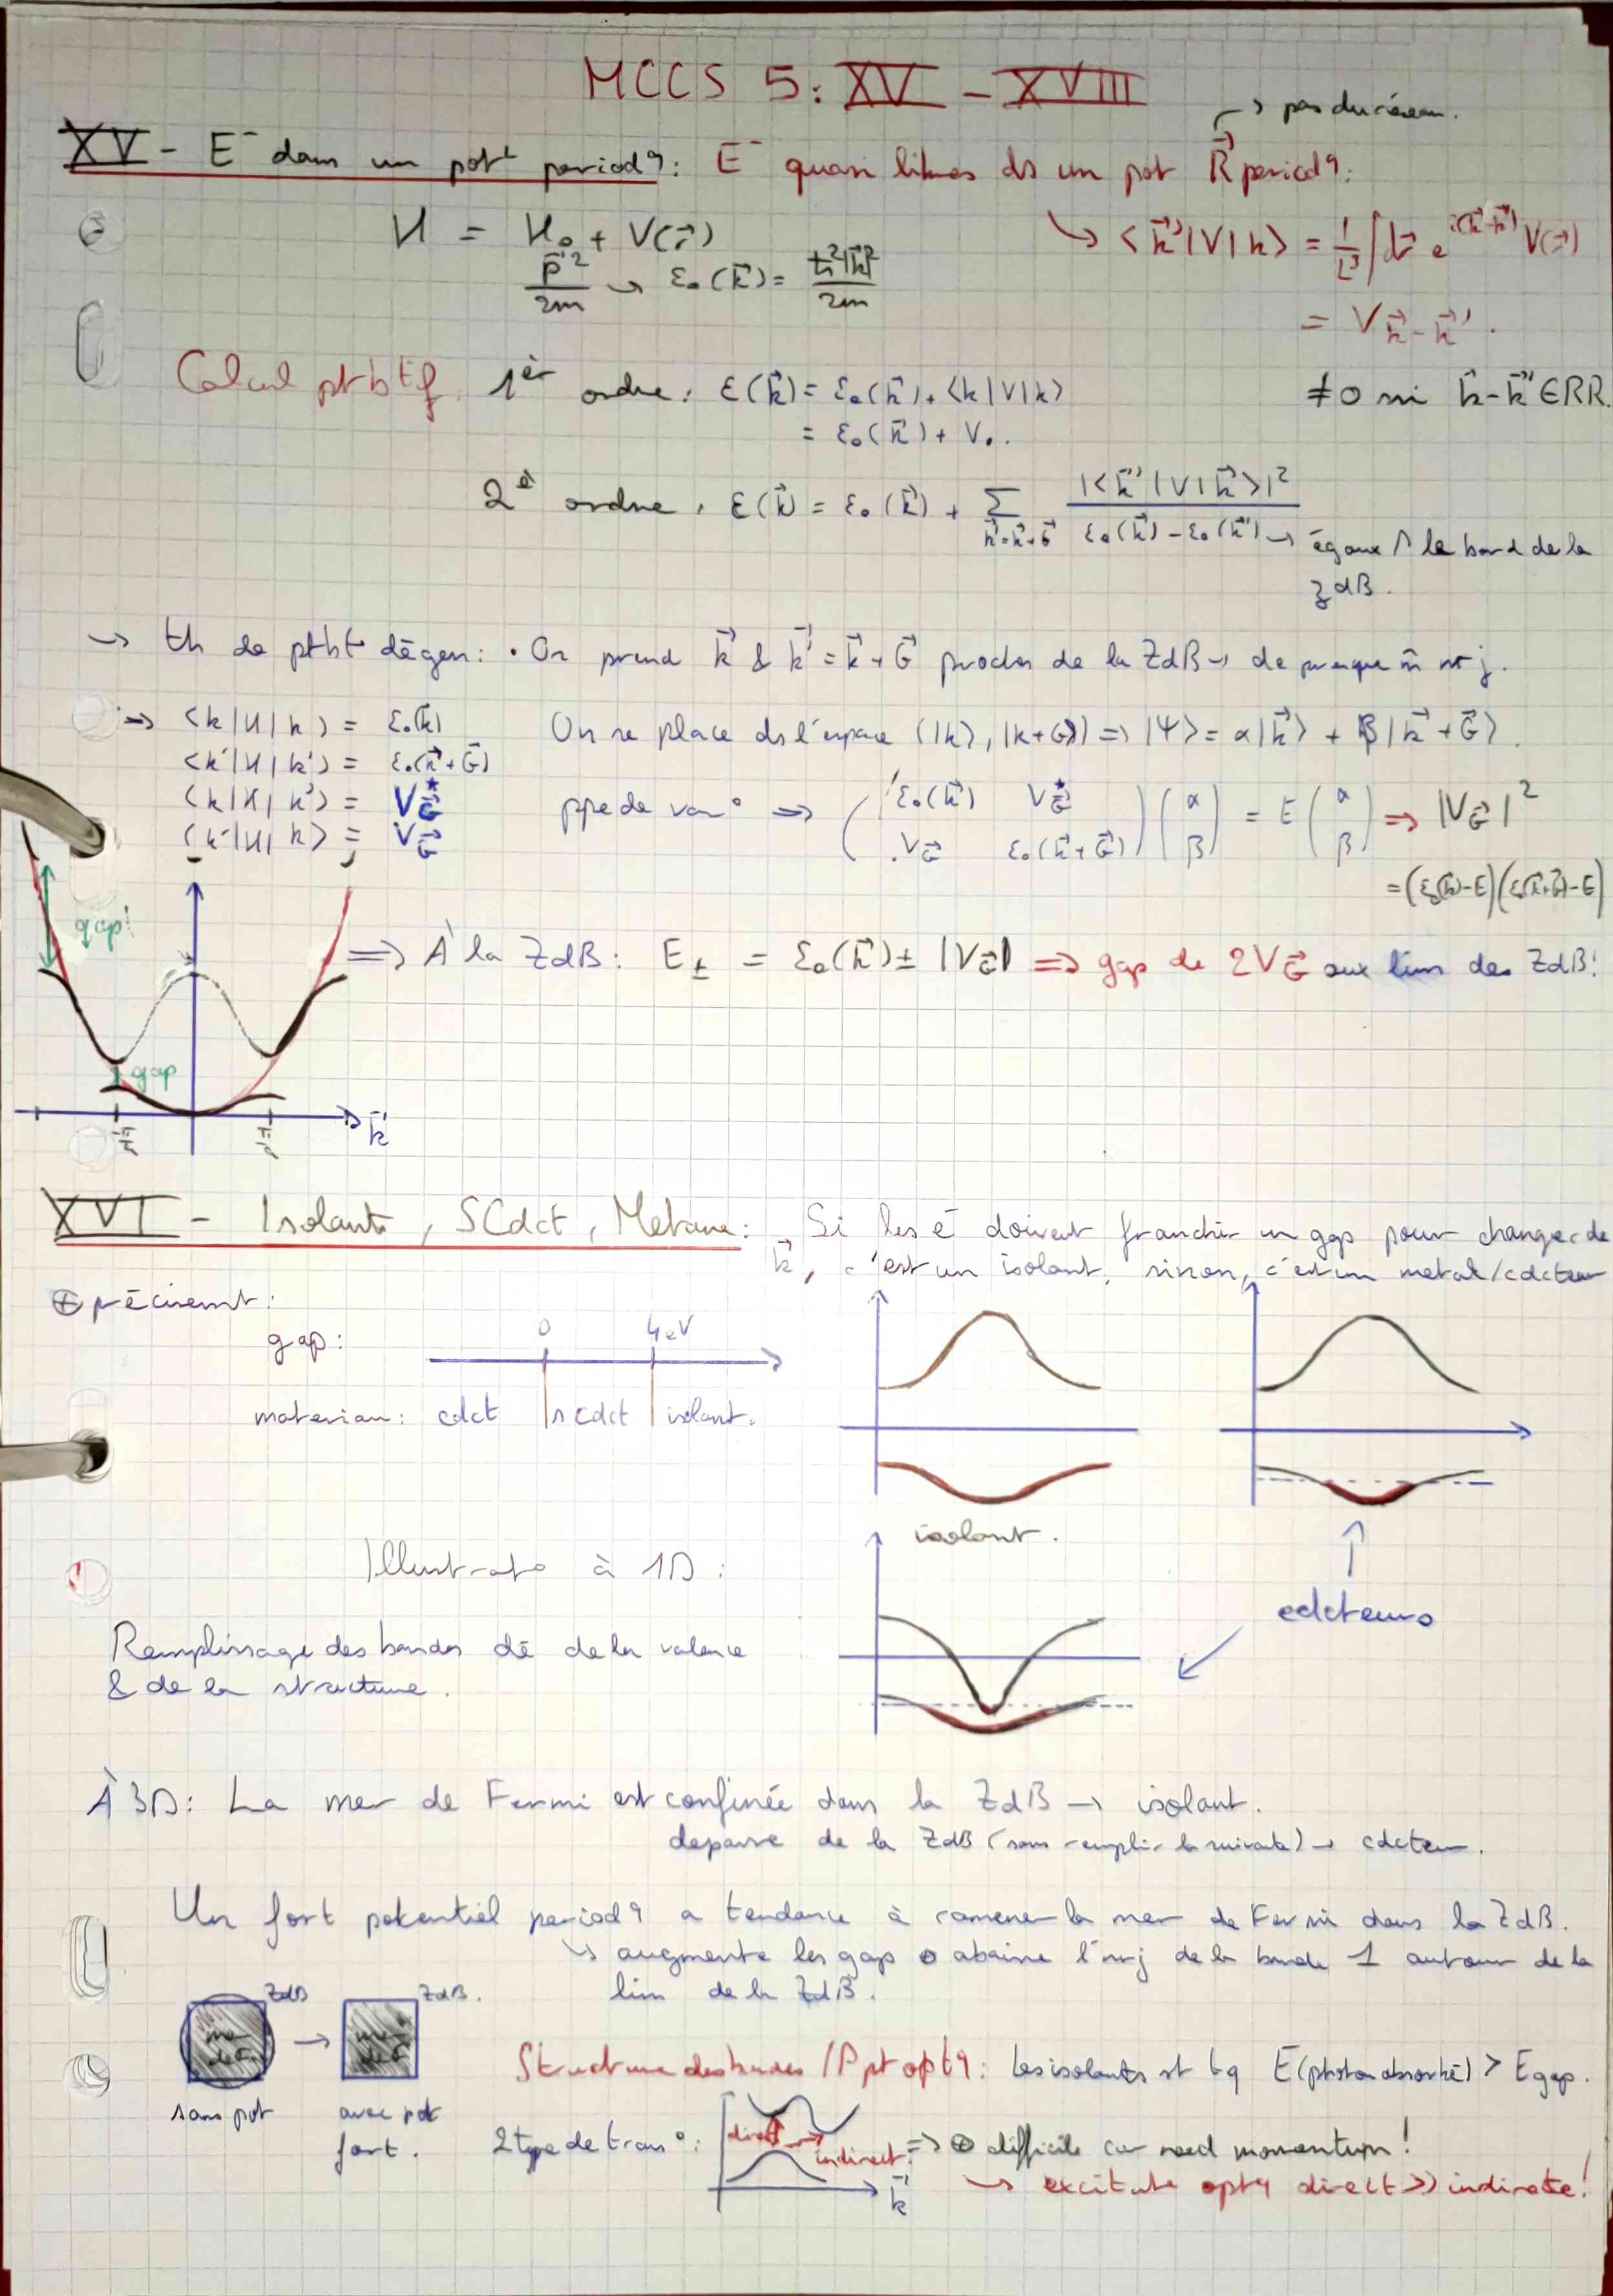 MCCS 5: XV - XVIII
→ pas du réseau.
XV - E⁻ dans un pot^t period^q: E⁻ quasi libres ds un pot R⃗ period^q:
H = H₀ + V(r⃗)
p⃗²/2m → ε₀(k⃗) = ħ²|k⃗|²/2m
↳ <k⃗'|V|k> = 1/L³ ∫dr⃗ e^{i(k⃗-k⃗')} V(r⃗)
= V_{k⃗-k⃗'}.
≠0 ssi k⃗-k⃗' ∈ RR.
Calcul ptbtif. 1^er ordre: ε(k⃗) = ε₀(k⃗) + <k|V|k>
= ε₀(k⃗) + V₀.
2^è ordre: ε(k⃗) = ε₀(k⃗) + Σ_{k⃗'=k⃗+G⃗} |<k⃗'|V|k⃗>|² / (ε₀(k⃗) - ε₀(k⃗')) → égaux à le bord de la
ZdB.
→ th de ptbt° dégen: • On prend k⃗ & k⃗' = k⃗+G⃗ proches de la ZdB → de presque m̂ nrj.
⇒ <k|H|k> = ε₀(k⃗)
<k'|H|k'> = ε₀(k⃗+G⃗)
<k|H|k'> = V*_G⃗
<k'|H|k> = V_G⃗
On se place ds l'espace (|k>, |k+G>) ⇒ |Ψ> = α|k⃗> + β|k⃗+G⃗>.
ppe de var° ⇒ (ε₀(k⃗) V*_G⃗ ; V_G⃗ ε₀(k⃗+G⃗)) (α ; β) = E (α ; β) ⇒ |V_G⃗|²
= (ε₀(k⃗)-E)(ε₀(k⃗+G⃗)-E)
gap!
⇒ À la ZdB: E± = ε₀(k⃗) ± |V_G⃗| ⇒ gap de 2V_G⃗ aux lim des ZdB!
gap
k⃗
XVI - Isolants, SCdct, Métaux: Si les e⁻ doivent franchir un gap pour changer de
k⃗, c'est un isolant, sinon, c'est un metal/cdcteur
⊕ précisemt:
gap: 0 4eV
materiau: cdct | scdct | isolant.
isolant.
Illustrat° à 1D:
cdcteurs
Remplissage des bandes dé de la valence
& de la structure.
À 3D: La mer de Fermi est confinée dans la ZdB → isolant.
depasse de la ZdB (sans remplir la suivante) → cdcteur.
Un fort potentiel period^q a tendance à ramener la mer de Fermi dans la ZdB.
↳ augmente les gap abaisse l'nrj de la bande 1 autour de la
lim de la ZdB.
ZdB → ZdB.
sans pot
avec pot
fort.
Structure des bandes / Ppt opt^q: Les isolants st tq E(photon absorbé) > Egap.
2 type de trans°:
direct
indirect
k⃗
⇒ ⊕ difficile car need momentum!
↳ excitat° opt^q direct >> indirecte!